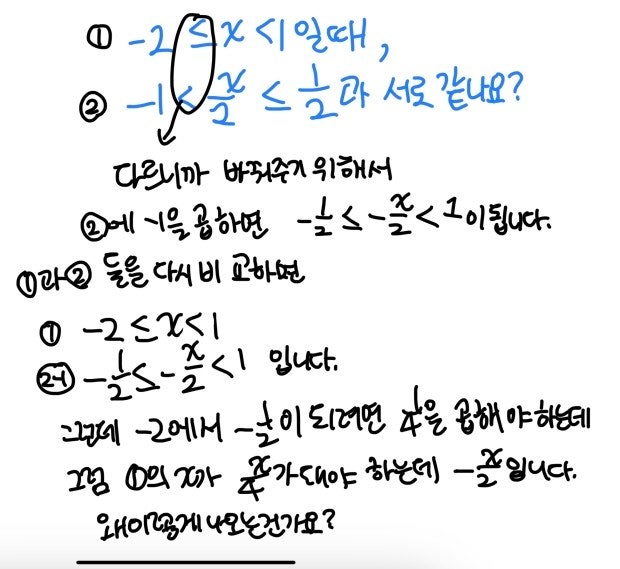 ① -2 ≤ x < 1 일때,
② -1 < x/2 ≤ 1/2 과 서로 같나요?
다르니까 바꿔주기 위해서
②에 -1을 곱하면 -1/2 ≤ -x/2 < 1 이됩니다.
①과② 둘을 다시 비교하면
① -2 ≤ x < 1
②-1 -1/2 ≤ -x/2 < 1 입니다.
그런데 -2에서 -1/2이 되려면 1/4을 곱해야하는데
그럼 ①의 x가 x/4가 돼야 하는데 -x/2입니다.
왜이렇게나오는건가요?